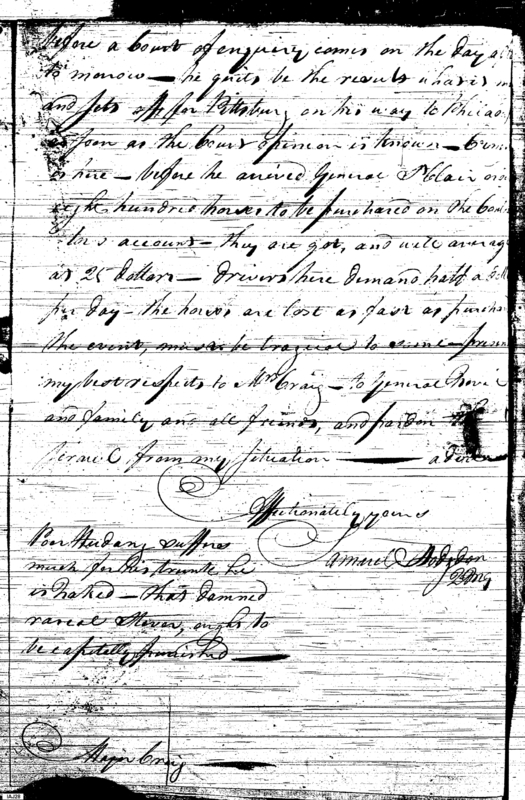 before a Court of enquiry comes on the day a
to morrow — he quits be the result what is m
and sets off for Pittsburg on his way to Philad
as soon as the Court opinion is known —
is here — before he arrived General St Clair ord
eight hundred horses to be purchased on the Con
tors account — they are got, and will average
at 25 dollars — drivers here demand half a doll
per day — the horses are lost as fast as purchas
the event, must be tragical to some — presen
my best respects to Mrs Craig — to General
and family and all friends, and pardon
scrawl from my situation — adieu
Affectionately yours
Samuel Hodgdon
QMG
Poor suffers
much for his trunk he
is naked — that damned
rascal ought to
be capitally punished —
Major Craig